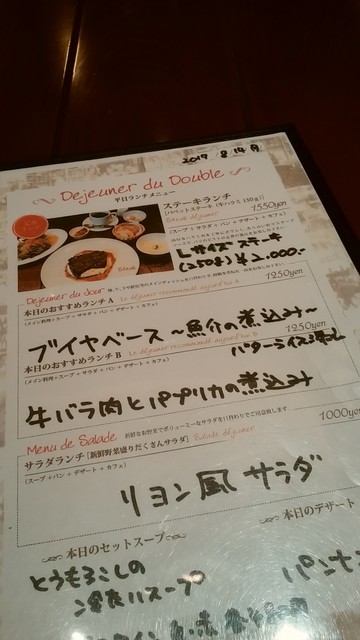 2017 8 14 月
Dejeuner du Double
平日ランチメニュー
ステーキランチ
1550yen
Steak déjeuner
(スープ+サラダ+パン+デザート+カフェ)
ステーキ
(250g) ¥2,000.-
Dejeuner du Jour
1250yen
本日のおすすめランチ A
(メイン料理+スープ+サラダ+パン+デザート+カフェ)
ブイヤベース〜魚介の煮込み〜
1250yen
本日のおすすめランチ B
バターライス添え
(メイン料理+スープ+サラダ+パン+デザート+カフェ)
牛バラ肉とパプリカの煮込み
Menu de Salade
1000yen
サラダランチ [新鮮野菜盛りだくさんサラダ] Salade déjeuner
(スープ+パン+デザート+カフェ)
リヨン風サラダ
〜本日のセットスープ〜
〜本日のデザート
とうもろこしの
冷たいスープ
パンナ